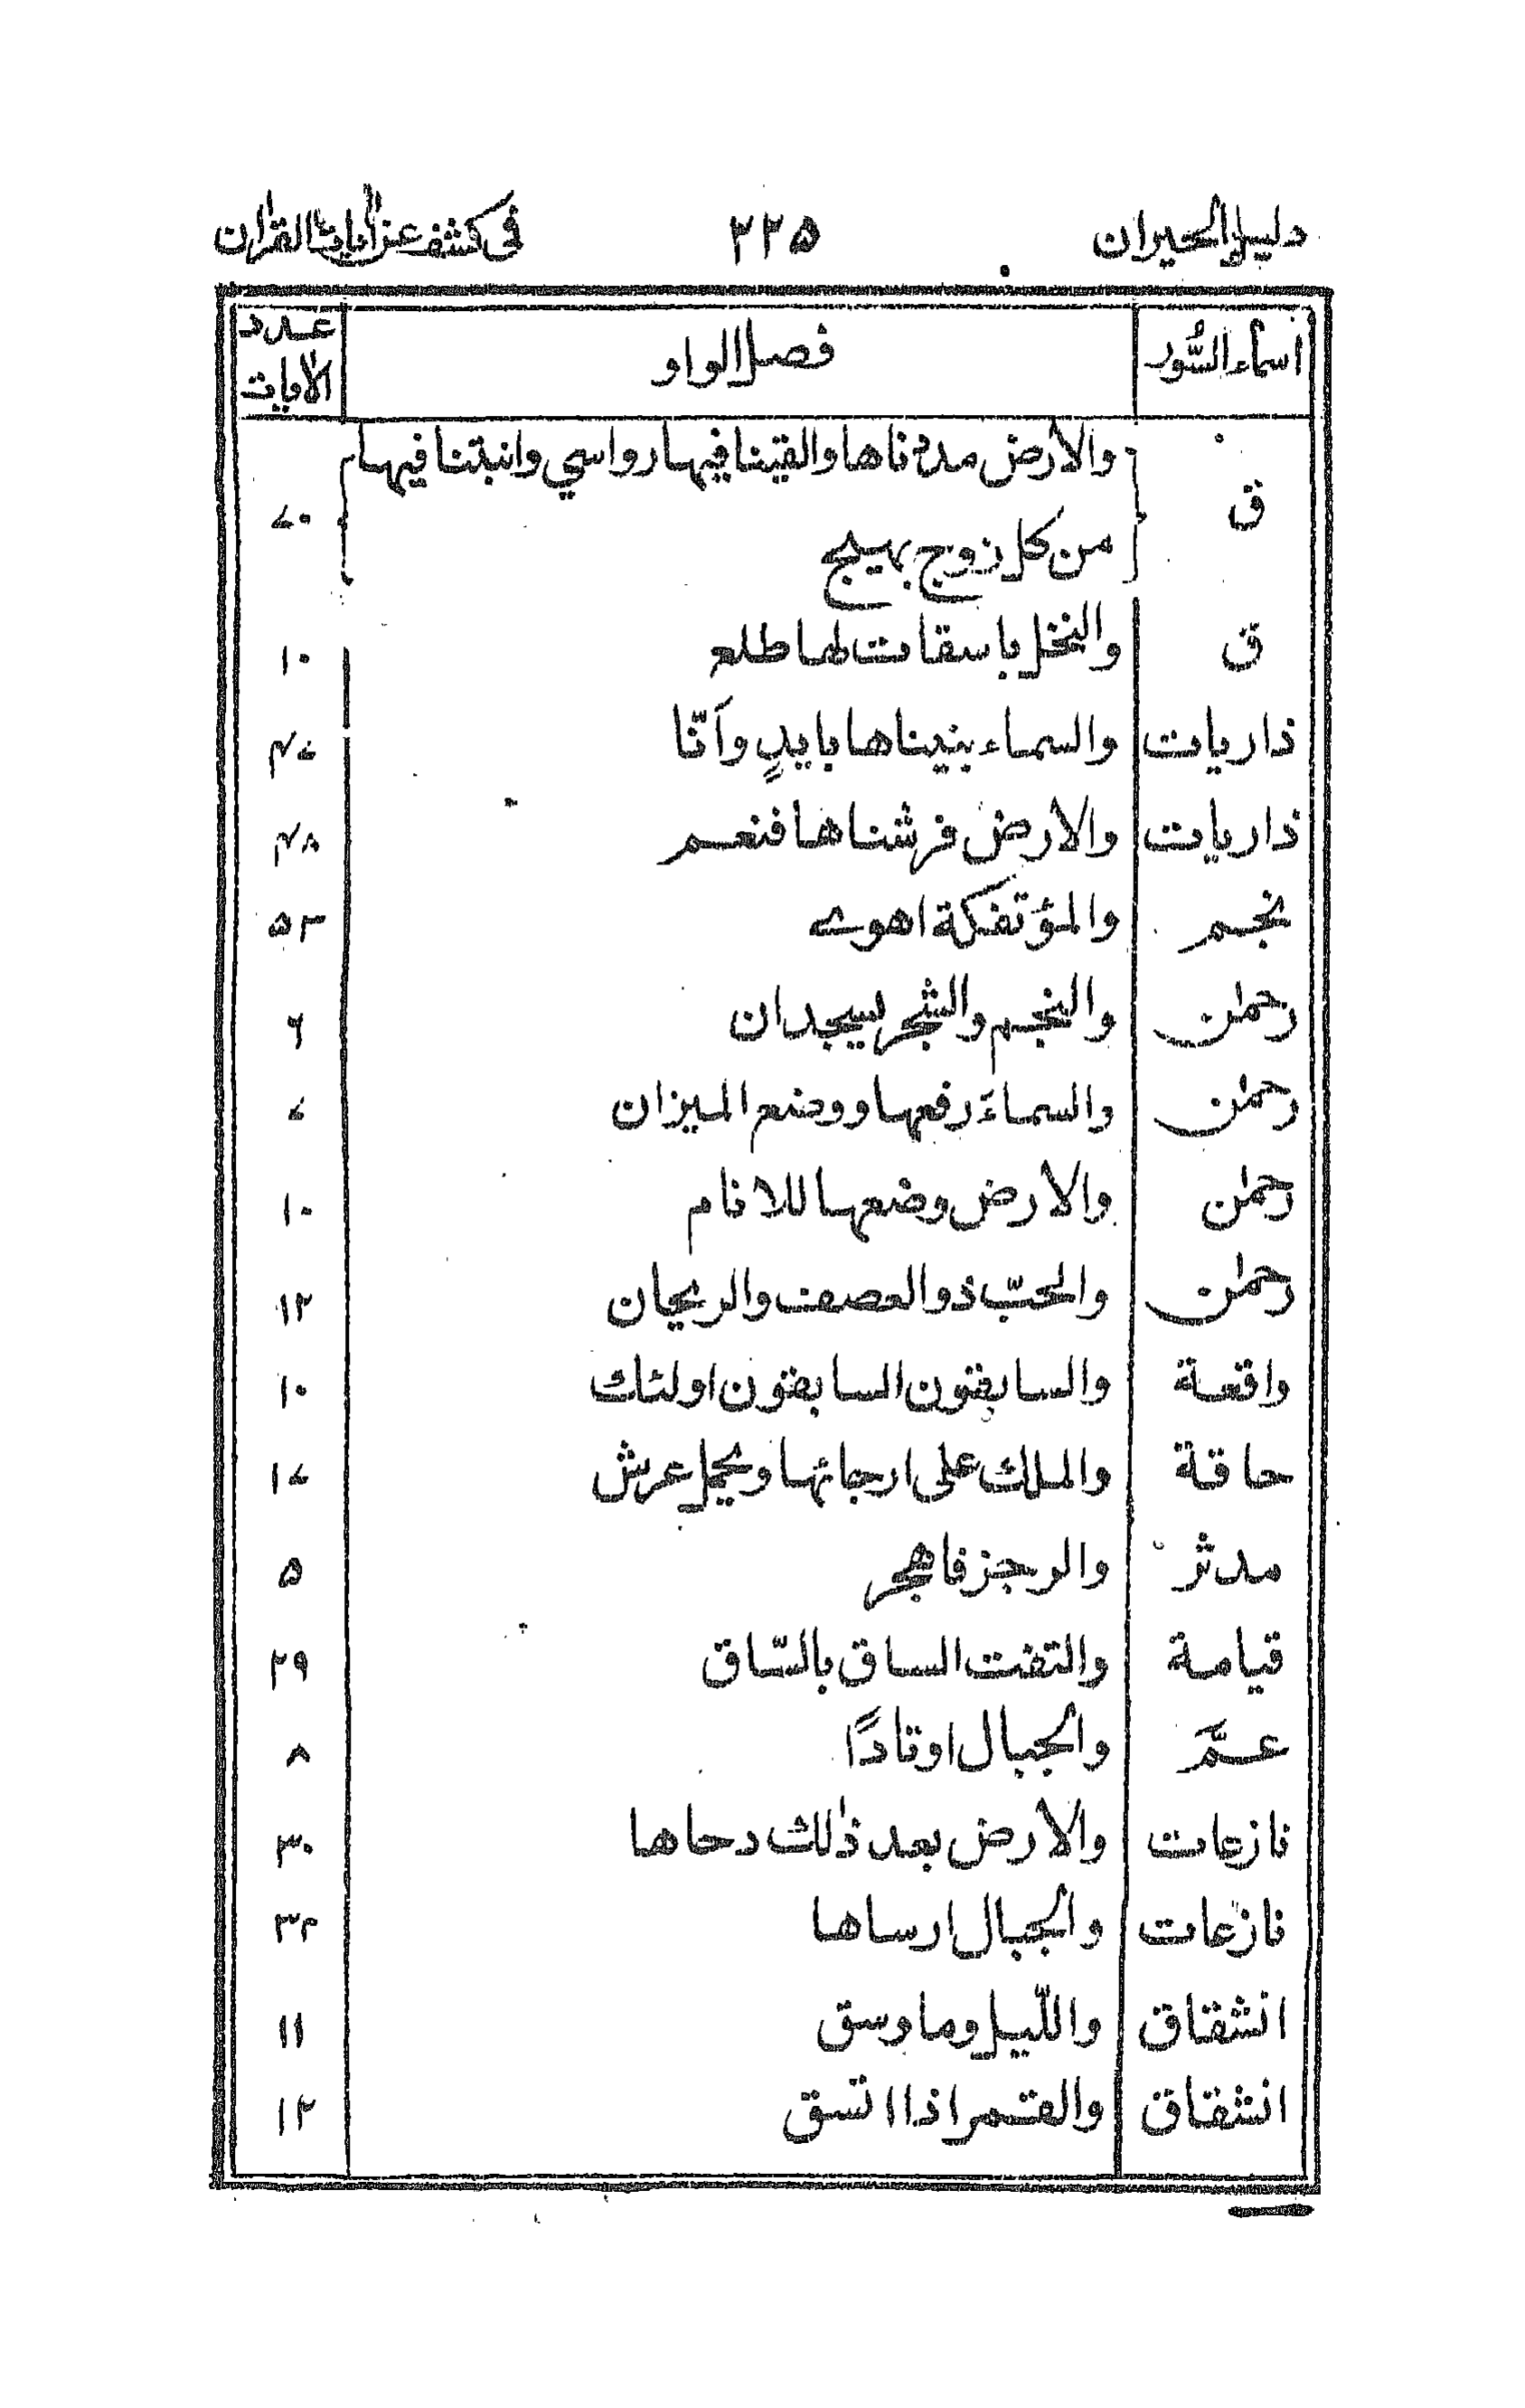 دليل الحيران ٢٢٥ في كشف عن آيات القرآن
أسماء السُّور فصل الواو عدد الآيات
ق والارض مددناها والقينا فيها رواسي وانبتنا فيها ٧٠
من كل زوج بهيج
ق والنخل باسقات لها طلع ١٠
ذاريات والسماء بنيناها بايدٍ وَانّا ٤٧
ذاريات والارض فرشناها فنعم ٤٨
نجم والمؤتفكة اهوى ٥٣
رحمٰن والنجم والشجر يسجدان ٦
رحمٰن والسماءَ رفعها ووضع الميزان ٧
رحمٰن والارض وضعها للانام ١٠
رحمٰن والحبّ ذو العصف والريحان ١٢
واقعة والسابقون السابقون اولئك ١٠
حاقة والملك على ارجائها ويحمل عرش ١٧
مدثر والرجز فاهجر ٥
قيامة والتفت الساق بالسّاق ٢٩
عمَّ والجبال اوتادًا ٨
نازعات والارض بعد ذٰلك دحاها ٣٠
نازعات والجبال ارساها ٣٢
انشقاق واللّيل وما وسق ١١
انشقاق والقمر اذا اتسق ١٢